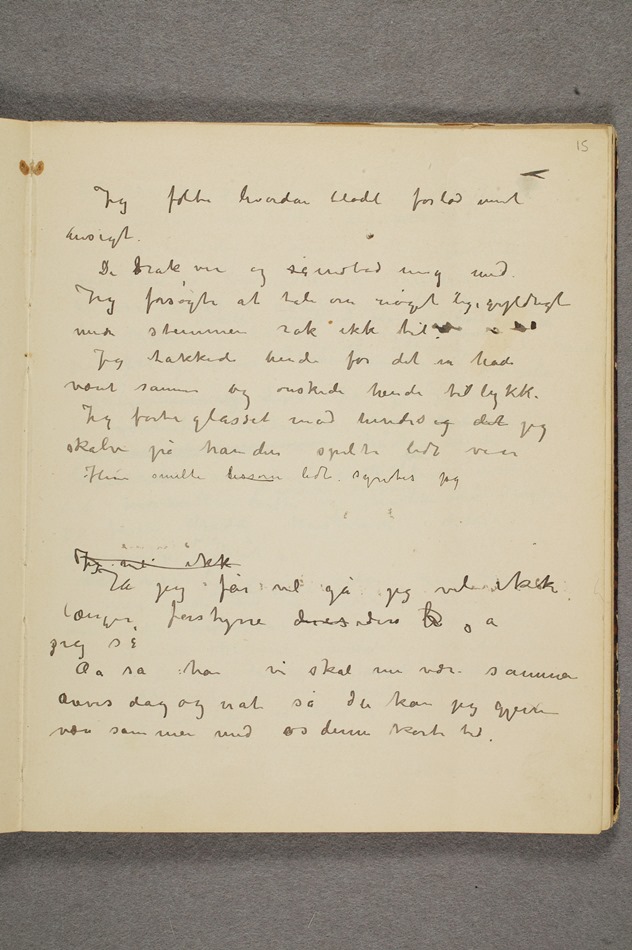 15
Jeg følte hvordan blodet forlod mit
ansigt.
De drak vin og indbød mig med.
Jeg forsøgte at tale om noget ligegyldigt
men stemmen rak ikke til.
Jeg takkede hende for det vi hade
været sammen og ønskede hende tillykke.
Jeg førte glasset mod munden og det jeg
skalv på handen spilte lidt vin
Hun smilte lidt syntes jeg
Jeg vil ikke
Ja jeg får vel gå jeg vil ikke
længer forstyrre deres
jeg så
Aa sa han vi skal nu være sammen
dag og nat så du kan jeg gjerne
være sammen med os denne korte tid.